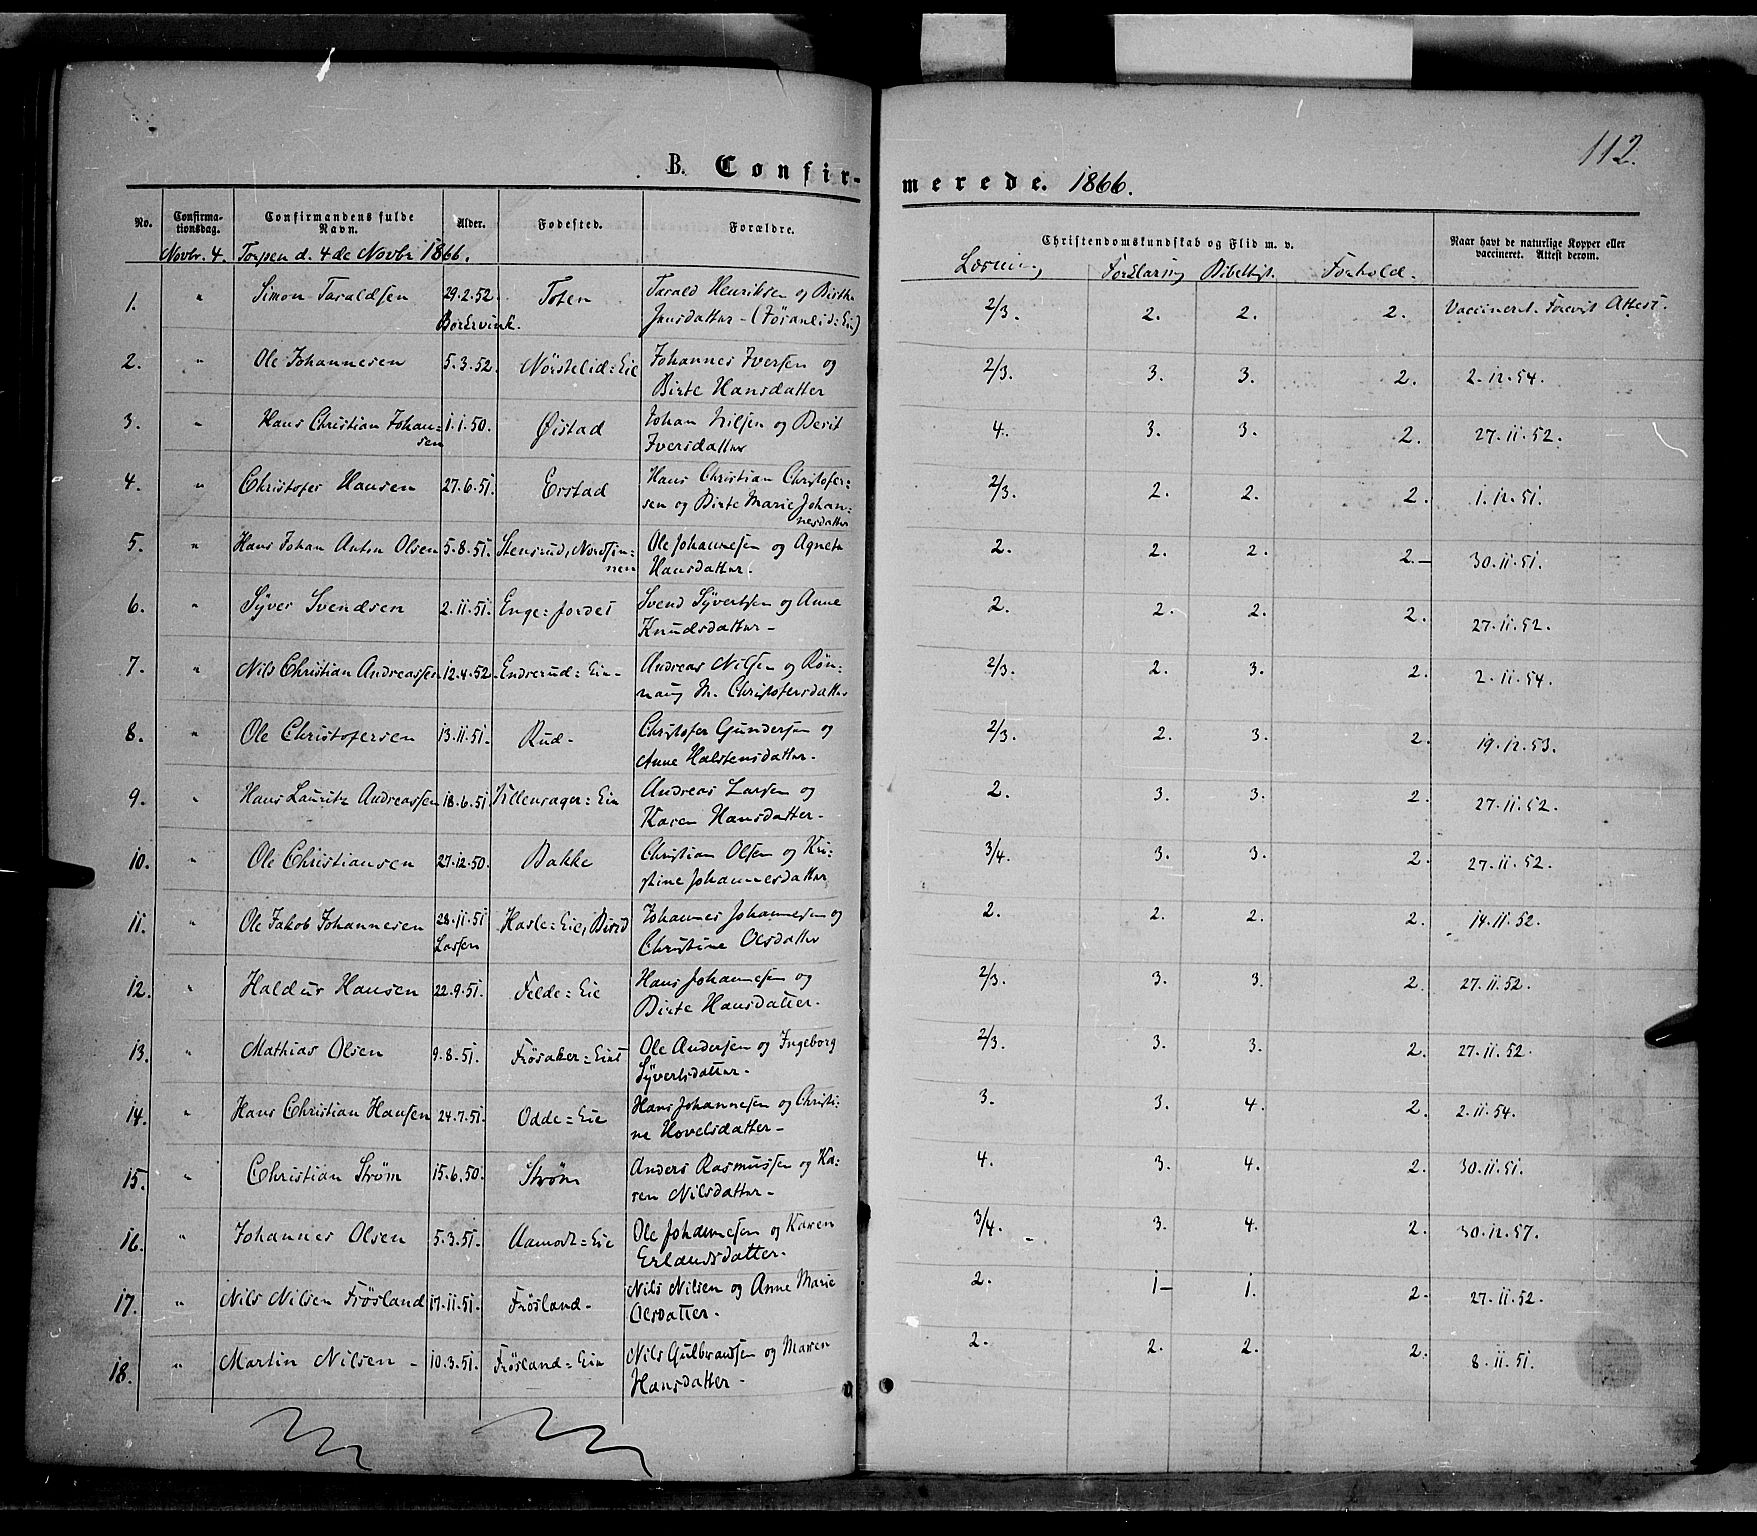 112.
B. Confir-merede. 1866.
No. Confirma-tionsdag. Confirmandens fulde Navn. Alder. Fødested. Forældre. Christendomskundskab og Flid m. v. Naar havt de naturlige Kopper eller vaccineret. Attest derom.
Læsning Forklaring Bibelhist. Forhold.
Novbr. 4. Torpen d. 4de Novbr 1866.
1. " Simon Taraldsen 29.2.52. Toten Tarald Henriksen og Birthe 2/3. 2. 2. 2. Vaccineret. Forevist Attest.
Jensdatter - Eie)
2. " Ole Johannesen 5.3.52. Nørstelid=Eie Johannes Iversen og 2/3. 3. 3. 2. 2.12.54.
Birte Hansdatter
3. " Hans Christian Johan= 1.1.50. Øistad Johan Nilsen og Berit 4. 3. 3. 2. 27.11.52.
sen Iversdatter
4. " Christofer Hansen 27.6.51. Erstad Hans Christian Christofer= 2/3. 2. 2. 2. 1.12.51.
sen og Birte Marie Johan=
nesdatter
5. " Hans Johan Anton Olsen 5.8.51. Stensrud, Nordsin= Ole Johannesen og Agnete 2. 2. 2. 2.- 30.11.51.
nen Hansdatter.
6. " Syver Svendsen 2.11.51. Enge=jordet Svend Syvertsen og Anne 2. 2. 2. 2. 27.11.52.
Knudsdatter -
7. " Nils Christian Andreassen 12.4.52. Endrerud=Eie- Andreas Nilsen og Røn= 2/3. 2. 3. 2. 2.11.54.
naug M. Christofersdatter
8. " Ole Christofersen 13.11.51. Rud- Christofer Gundersen og 2/3. 2. 3. 2. 19.12.53.
Anne Halstensdatter.
9. " Hans Lauritz Andreassen 18.6.51. Villensager=Eie Andreas Larsen og 2. 3. 3. 2. 27.11.52.
Karen Hansdatter.
10. " Ole Christiansen 27.12.50. Bakke Christian Olsen og Kri= 3/4. 3. 3. 2. 27.11.52.
stine Johannesdatter
11. " Ole Jakob Johannesen 28.11.51 Hasle=Eie, Birid Johannes Johannesen og 2. 2. 2. 2. 14.11.52.
Christine Olsdatter
12. " Haldur Hansen 22.9.51. Felde=Eie Hans Johannesen og 2/3. 3. 3. 2. 27.11.52.
Birte Hansdatter.
13. " Mathias Olsen 9.8.51. Frøsaker=Eiet Ole Andersen og Ingeborg 2/3. 3. 3. 2. 27.11.52.
Syvertsdatter.
14. " Hans Christian Hansen 24.7.51. Odde=Eie Hans Johannesen og Christi= 3. 3. 4. 2. 2.11.54.
ne Hovelsdatter -
15. " Christian Strøm 15.6.50. Strøm Anders Rasmussen og Ka= 4. 3. 4. 2. 30.11.51.
ren Nilsdatter -
16. " Johannes Olsen 5.3.51. Aamodt=Eie Ole Johannesen og Karen 3/4. 3. 4. 2. 30.12.57.
Erlandsdatter.
17. " Nils Nilsen Frøsland 17.11.51. Frøsland- Nils Nilsen og Anne Marie 2. 1- 1. 2. 27.11.52.
Olsdatter.
18. " Martin Nilsen - 10.3.51. Frøsland=Eie Nils Gulbrandsen og Maren 2. 2. 2. 2. 8.11.51.
Hansdatter -